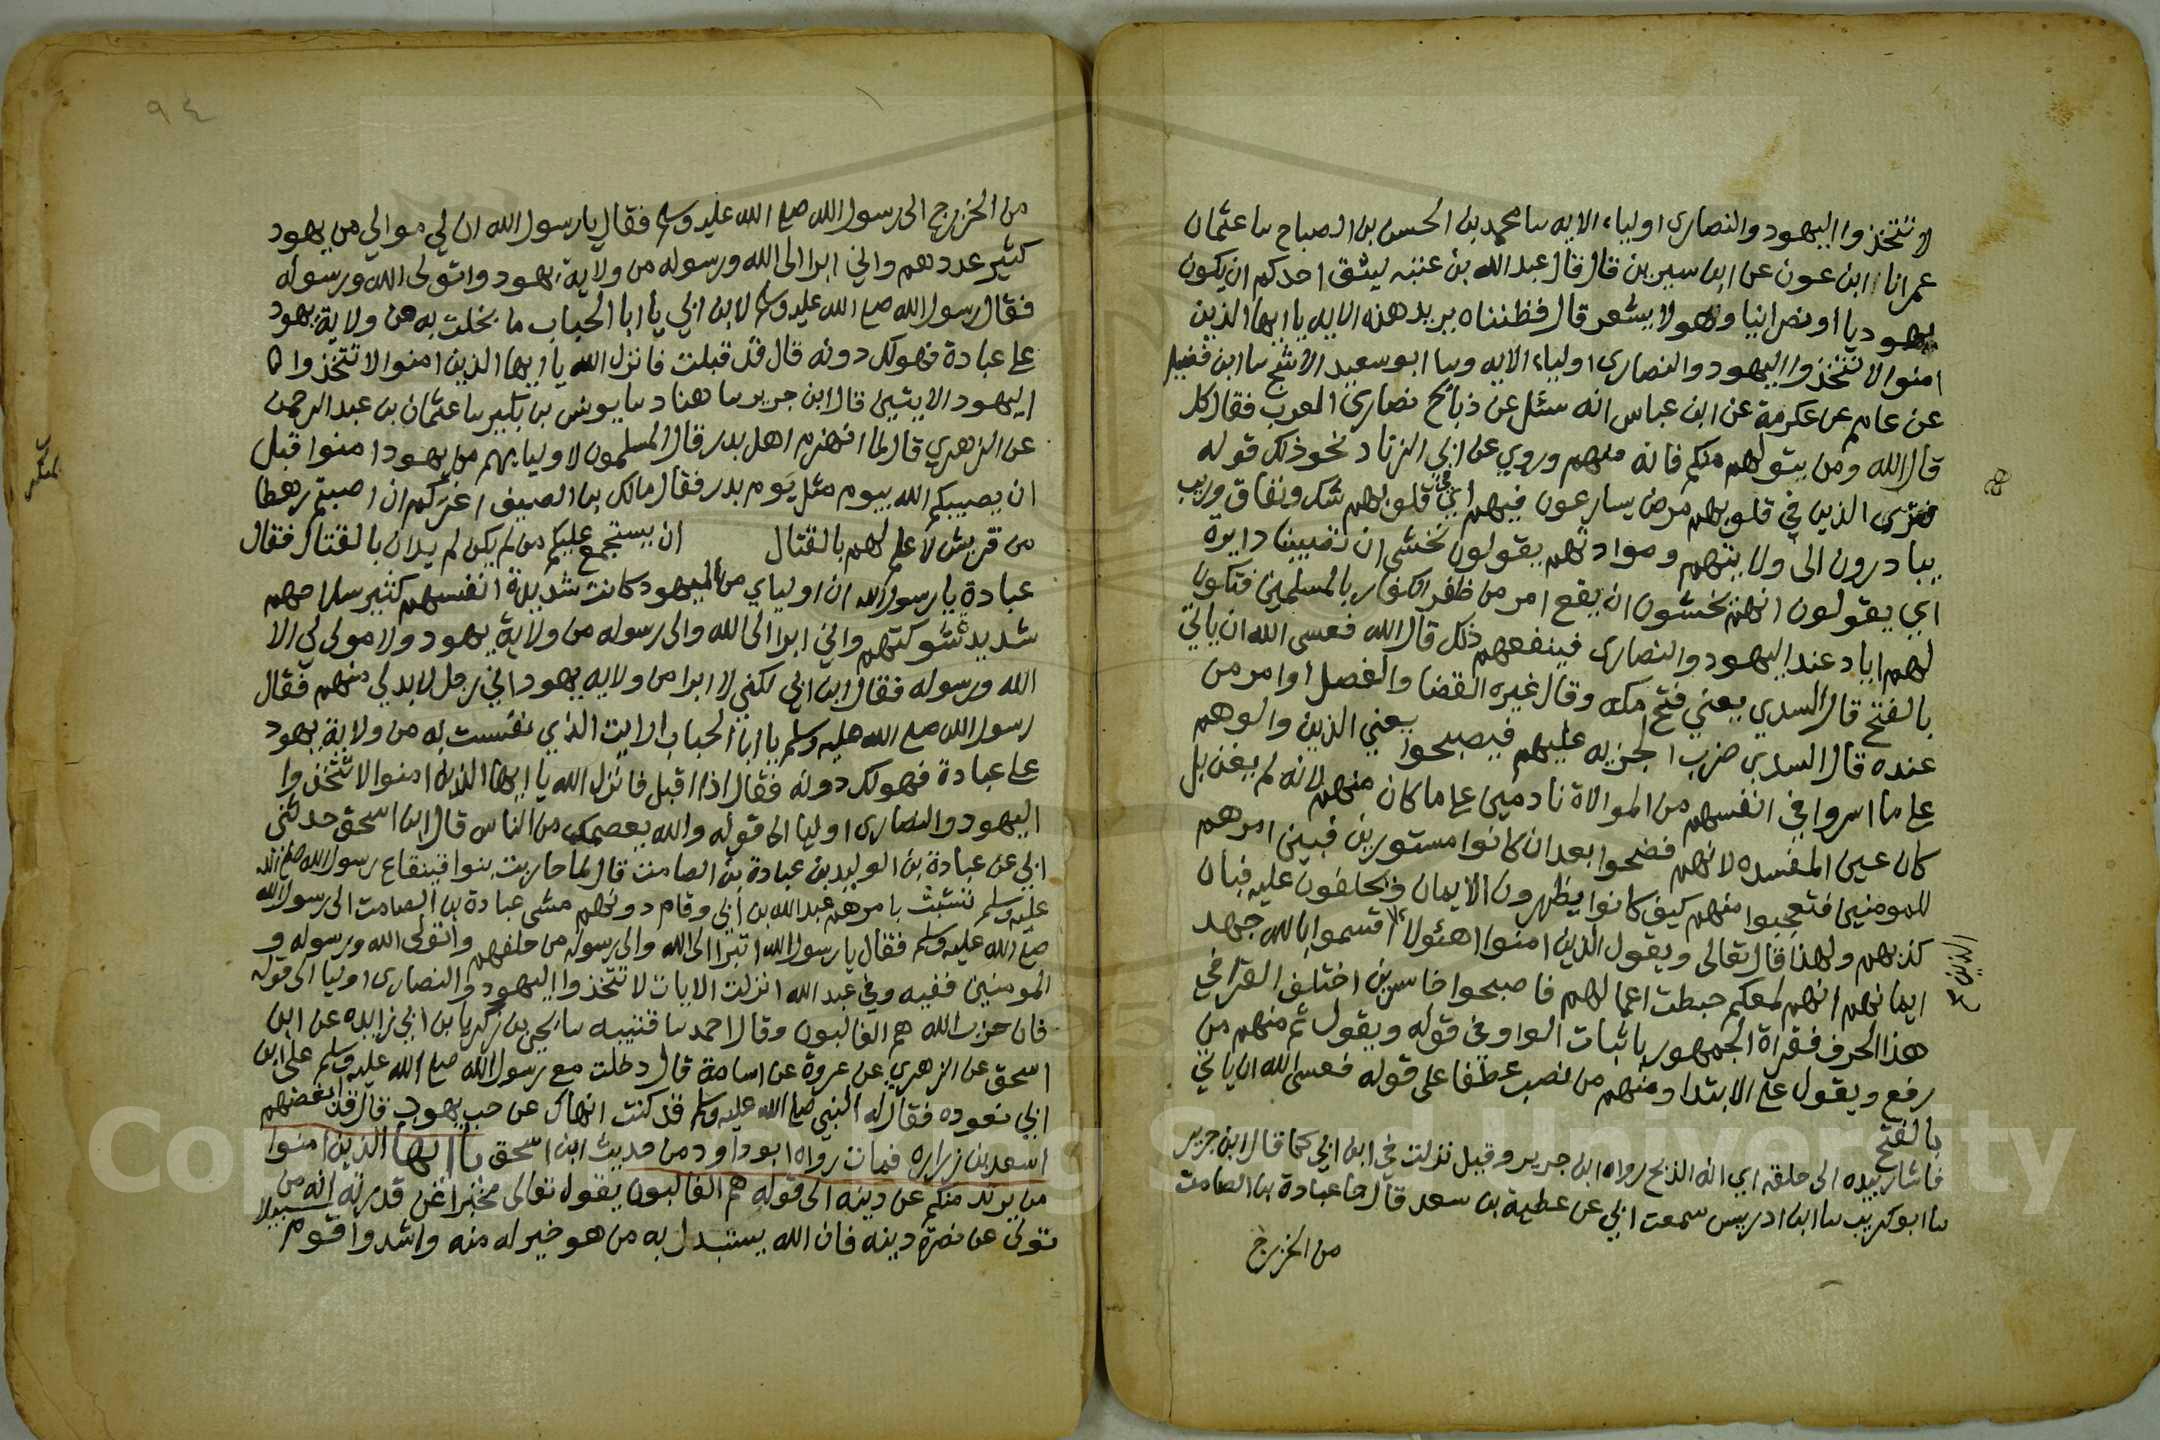 لا تتخذوا اليهود والنصارى اولياء الايه سا محمد بن الحسن بن الصباح سا عثمان
عمر انا ابن عون عن ابن سيرين قال قال عبد الله بن عتبه ليتق احدكم ان يكون
يهوديا او نصرانيا وهو لا يشعر قال فظنناه يريد هذه الايه يا ايها الذين
امنوا لا تتخذوا اليهود والنصارى اولياء الايه وسا ابو سعيد الاشج سا ابن فضيل
عن عاصم عن عكرمة عن ابن عباس انه سئل عن ذبائح نصارى العرب فقال كل
قال الله ومن يتولهم منكم فانه منهم وروي عن ابي الزناد نحو ذلك قوله
فترى الذين في قلوبهم مرض يسارعون فيهم اي في قلوبهم شك ونفاق وريب
يبادرون الى ولايتهم وموادتهم يقولون نخشى ان تصيبنا دايرة
اي يقولون انهم يخشون ان يقع امر من ظفر الكفار بالمسلمين فتكون
لهم اياد عند اليهود والنصارى فينفعهم ذلك قال الله فعسى الله ان ياتي
بالفتح قال السدي يعني فتح مكه وقال غيره القضا والفصل او امر من
عنده قال السدي ضرب الجزيه عليهم فيصبحوا يعني الذين والوهم
على ما اسروا في انفسهم من الموالاة نادمين على ما كان منهم لانه لم يغن بل
كان عين المفسده لانهم فضحوا بعد ان كانوا مستورين فبين امرهم
للمومنين فتعجبوا منهم كيف كانوا يظهرون الايمان ويحلفون عليه فبان
كذبهم ولهذا قال تعالى ويقول الذين امنوا اهئولا اقسموا بالله جهد
الذين
ايمانهم انهم لمعكم حبطت اعمالهم فاصبحوا خاسرين اختلف القرا في
هذا الحرف فقراة الجمهور باثبات الواو في قوله ويقول ثم منهم من
رفع ويقول على الابتدا ومنهم من نصب عطفا على قوله فعسى الله ان ياتي
بالفتح
فاشار بيده الى حلقه اي انه الذبح رواه ابن جرير وقيل نزلت في ابن ابي كما قال ابن جرير
سا ابو كريب سا ابن ادريس سمعت ابي عن عطية بن سعد قال جا عبادة بن الصامت
من الخزرج
٩٤
من الخزرج الى رسول الله صلى الله عليه وسلم فقال يا رسول الله ان لي موالي من يهود
كثير عددهم واني ابرا الى الله ورسوله من ولاية يهود واتولى الله ورسوله
فقال رسول الله صلى الله عليه وسلم لابن ابي يا أبا الحباب ما بخلت به من ولاية يهود
على عبادة فهو لك دونه قال قد قبلت فانزل الله يا ايها الذين امنوا لا تتخذوا
اليهود الايتين قال ابن جرير سا هناد سا يونس بن بكير سا عثمان بن عبد الرحمن
عن الزهري قال لما انهزم اهل بدر قال المسلمون لاوليايهم من يهود امنوا قبل
ان يصيبكم الله بيوم مثل يوم بدر فقال مالك بن الصيف اغركم ان اصبتم رهطا
من قريش لا علم لهم بالقتال ان يستجمع عليكم من لم يكن لم يدان بالقتال فقال
عبادة يا رسول الله ان اولياي من اليهود كانت شديدة انفسهم كثير سلاحهم
شديدة شوكتهم واني ابرا الى الله والى رسوله من ولاية يهود ولا مولى لي الا
الله ورسوله فقال ابن ابي لكني لا ابرا من ولايه يهود اني رجل لا بد لي منهم فقال
رسول الله صلى الله عليه وسلم يا ابا الحباب ارايت الذي نفست به من ولاية يهود
على عبادة فهو لك دونه فقال اذا اقبل فانزل الله يا ايها الذين امنوا لا تتخذوا
اليهود والنصارى اوليا الى قوله والله يعصمك من الناس قال ابن اسحق حدثني
ابي عن عبادة بن الوليد بن عبادة بن الصامت قال لما حاربت بنوا قينقاع رسول الله صلى الله
عليه وسلم تشبث بامرهم عبد الله بن ابي وقام دونهم مشى عبادة بن الصامت الى رسول الله
صلى الله عليه وسلم فقال يا رسول الله اتبرا الى الله والى رسوله من حلفهم واتولى الله ورسوله و
المومنين ففيه وفي عبد الله انزلت الايات لا تتخذوا اليهود والنصارى اوليا الى قوله
فان حزب الله هم الغالبون وقال احمد سا قتيبه سا يحيى بن زكريا بن ابي زايده عن ابن
اسحق عن الزهري عن عروة عن اسامة قال دخلت مع رسول الله صلى الله عليه وسلم على ابن
ابي نعوده فقال له النبي صلى الله عليه وسلم قد كنت انهاك عن حب يهود قال قد ابغضهم
اسعد بن زراره فمات رواه ابو داود من حديث ابن اسحق يا ايها الذين امنوا
من يرتد منكم عن دينه الى قوله هم الغالبون يقول تعالى مخبرا عن قدرته انه من
تولى عن نصرة دينه فان الله يستبدل به من هو خير له منه واشد واقوم سبيلا
Copyright © King Saud University